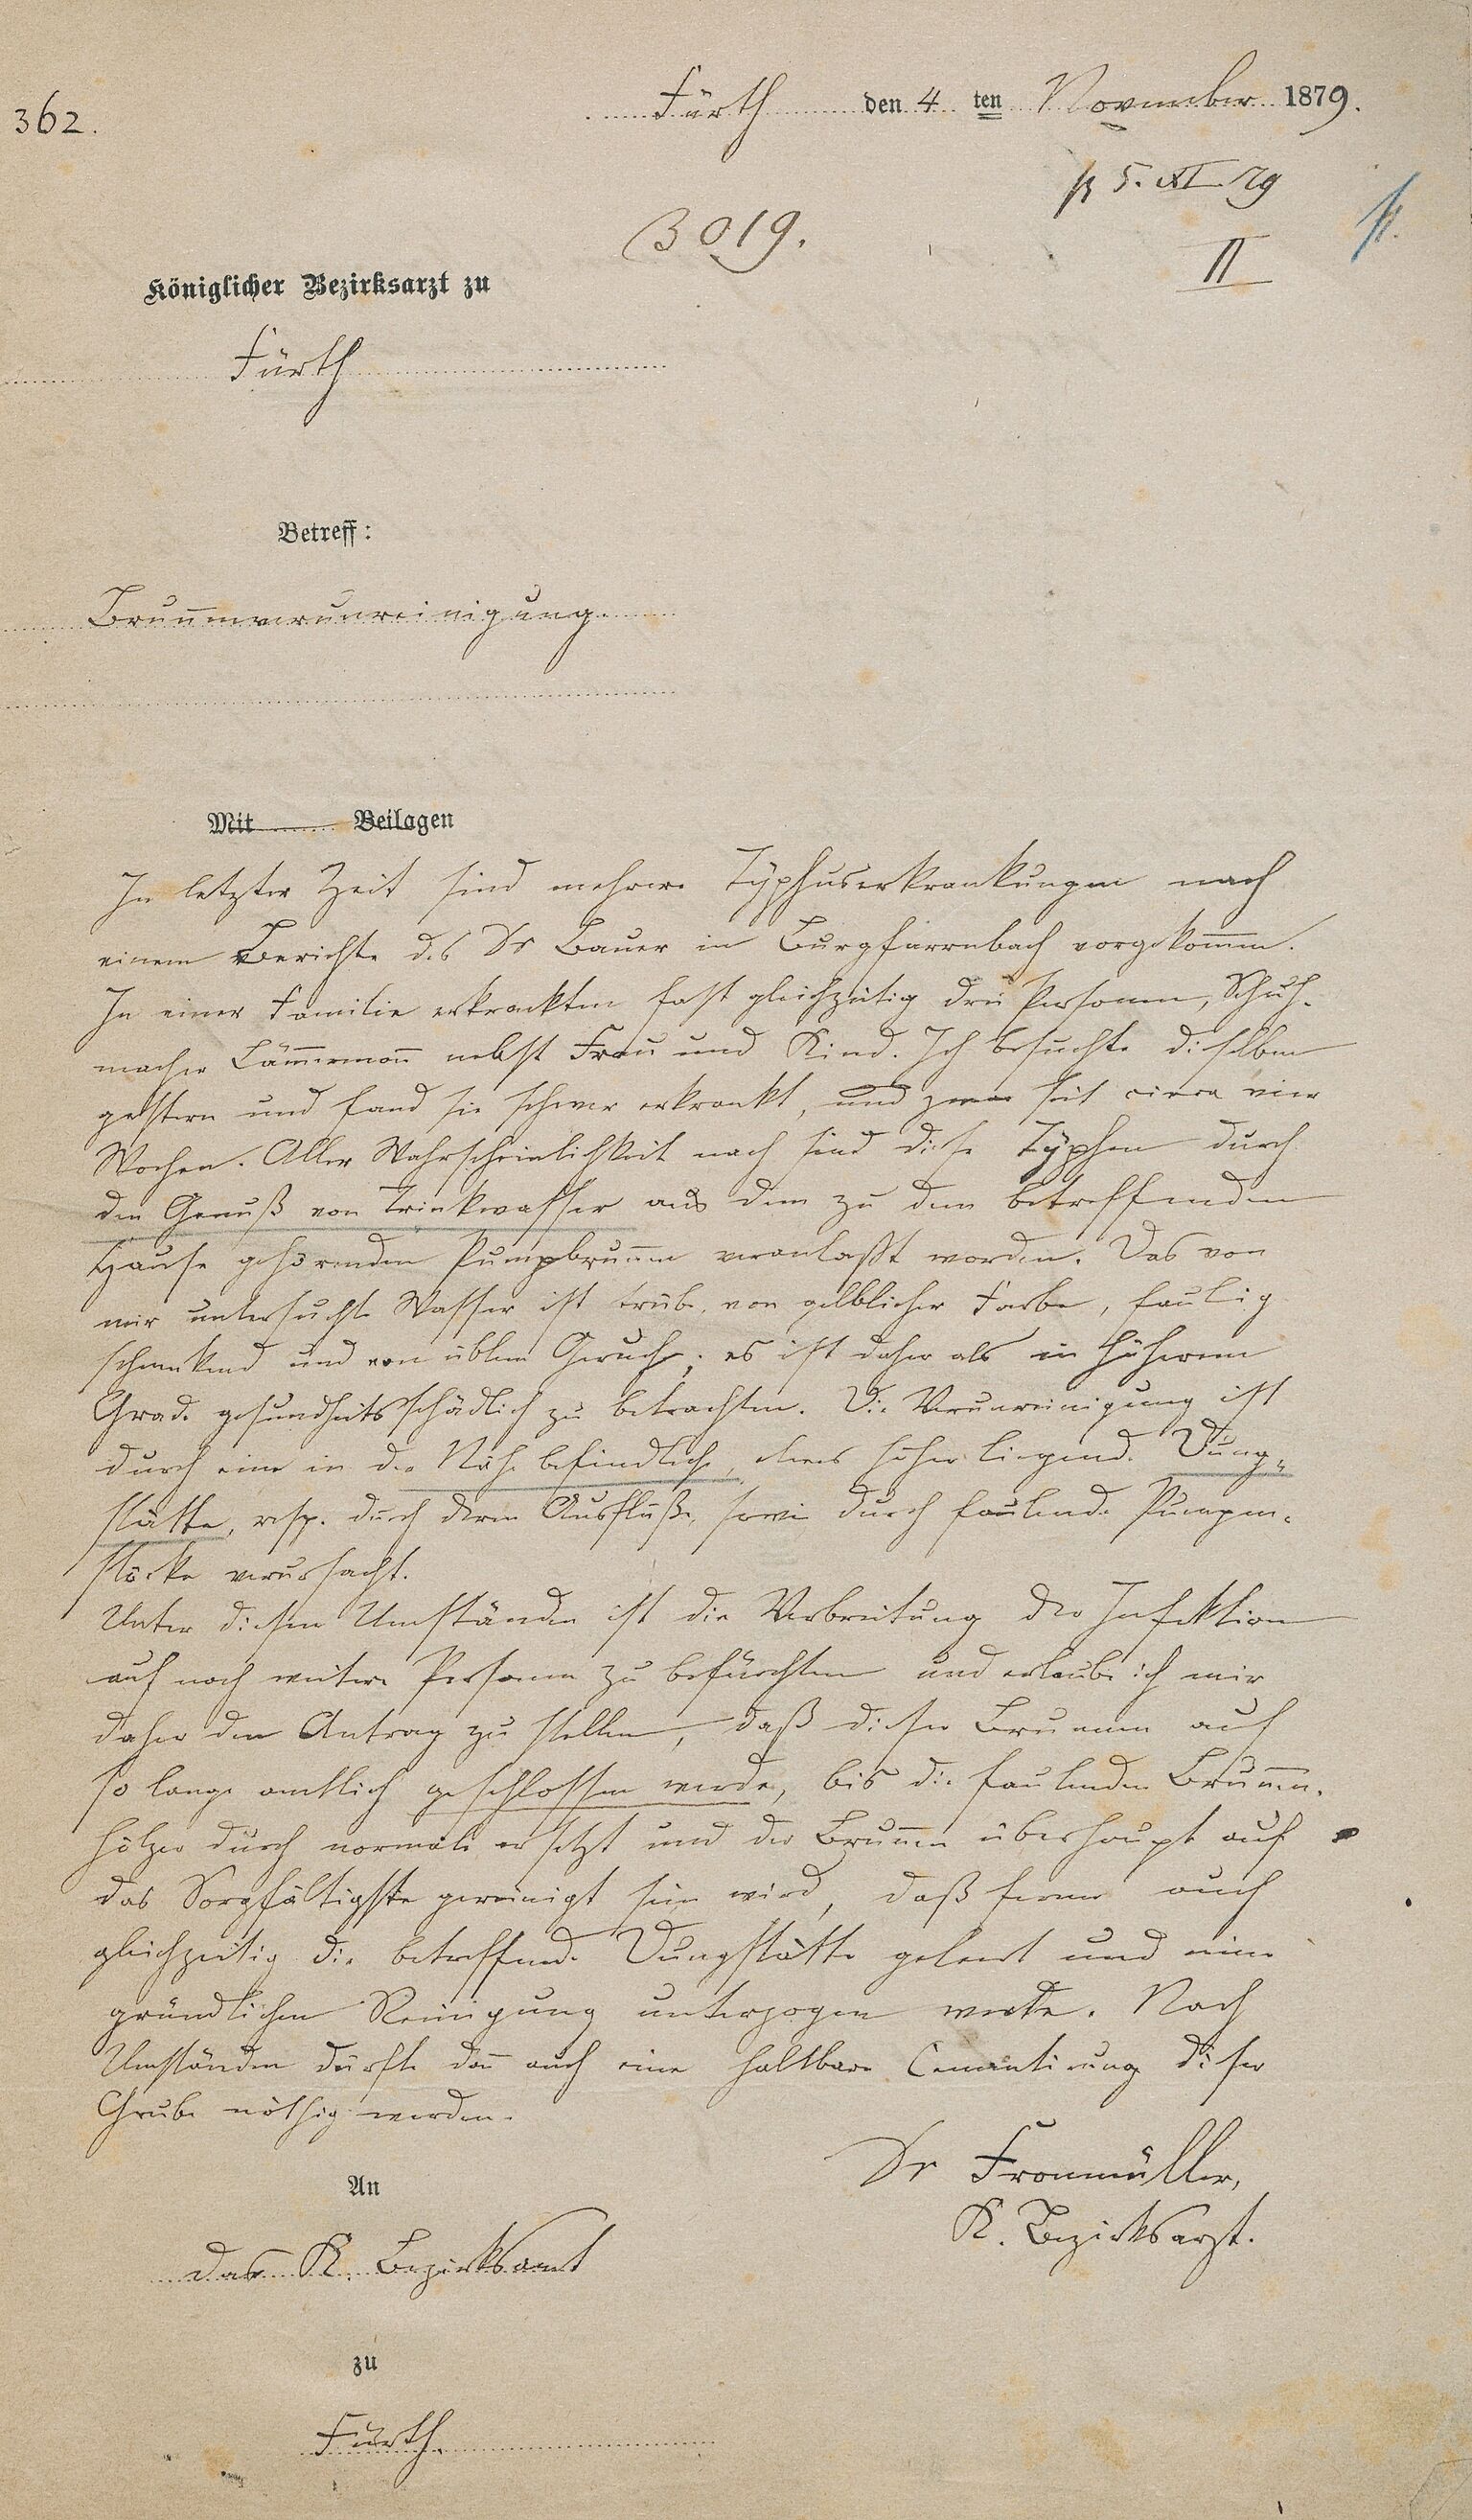 Fürth den 4 ten November 1879.
362.
5. XI 79
3019.
II
Königlicher Bezirksarzt zu
Fürth
Betreff:
Brunnenverunreinigung.
Mit Beilagen
In letzter Zeit sind mehrere Typhuserkrankungen nach
einem Berichte des Dr Bauer in Burgfarrnbach vorgekommen.
In einer Familie erkrankten fast gleichzeitig drei Personen, Schuh-
macher Lämmermann nebst Frau und Kind. Ich besuchte dieselben
gestern und fand sie schwer erkrankt, und zwar seit circa vier
Wochen. Aller Wahrscheinlichkeit nach sind diese Typhen durch
den Genuß von Trinkwasser aus dem zu dem betreffenden
Hause gehörenden Pumpbrunnen veranlaßt worden. Das von
mir untersuchte Wasser ist trübe, von gelblicher Farbe, faulig
schmekend und von üblem Geruch; es ist daher als in höherem
Grade gesundheitsschädlich zu betrachten. Die Verunreinigung ist
durch eine in der Nähe befindliche, etwas höher liegende Dung-
stätte, resp. durch deren Ausfluße, sowie durch faulende Pumpen-
stöcke verursacht.
Unter diesen Umständen ist die Verbreitung der Infektion
auf noch weitere Personen zu befürchten und erlaube ich mir
daher den Antrag zu stellen, daß dieser Brunnen auf
so lange amtlich geschlossen werde, bis die faulenden Brunnen-
hölzer durch normale ersetzt und der Brunnen überhaupt auf
das Sorgfältigste gereinigt sein wird, daß ferner auch
gleichzeitig die betreffende Dungstätte geleert und einer
gründlichen Reinigung unterzogen werde. Nach
Umständen dürfte dann auch eine haltbare Cementirung dieser
Grube nöthig werden.
Dr Fronmüller,
K. Bezirksarzt.
An
das K. Bezirksamt
zu
Fürth.